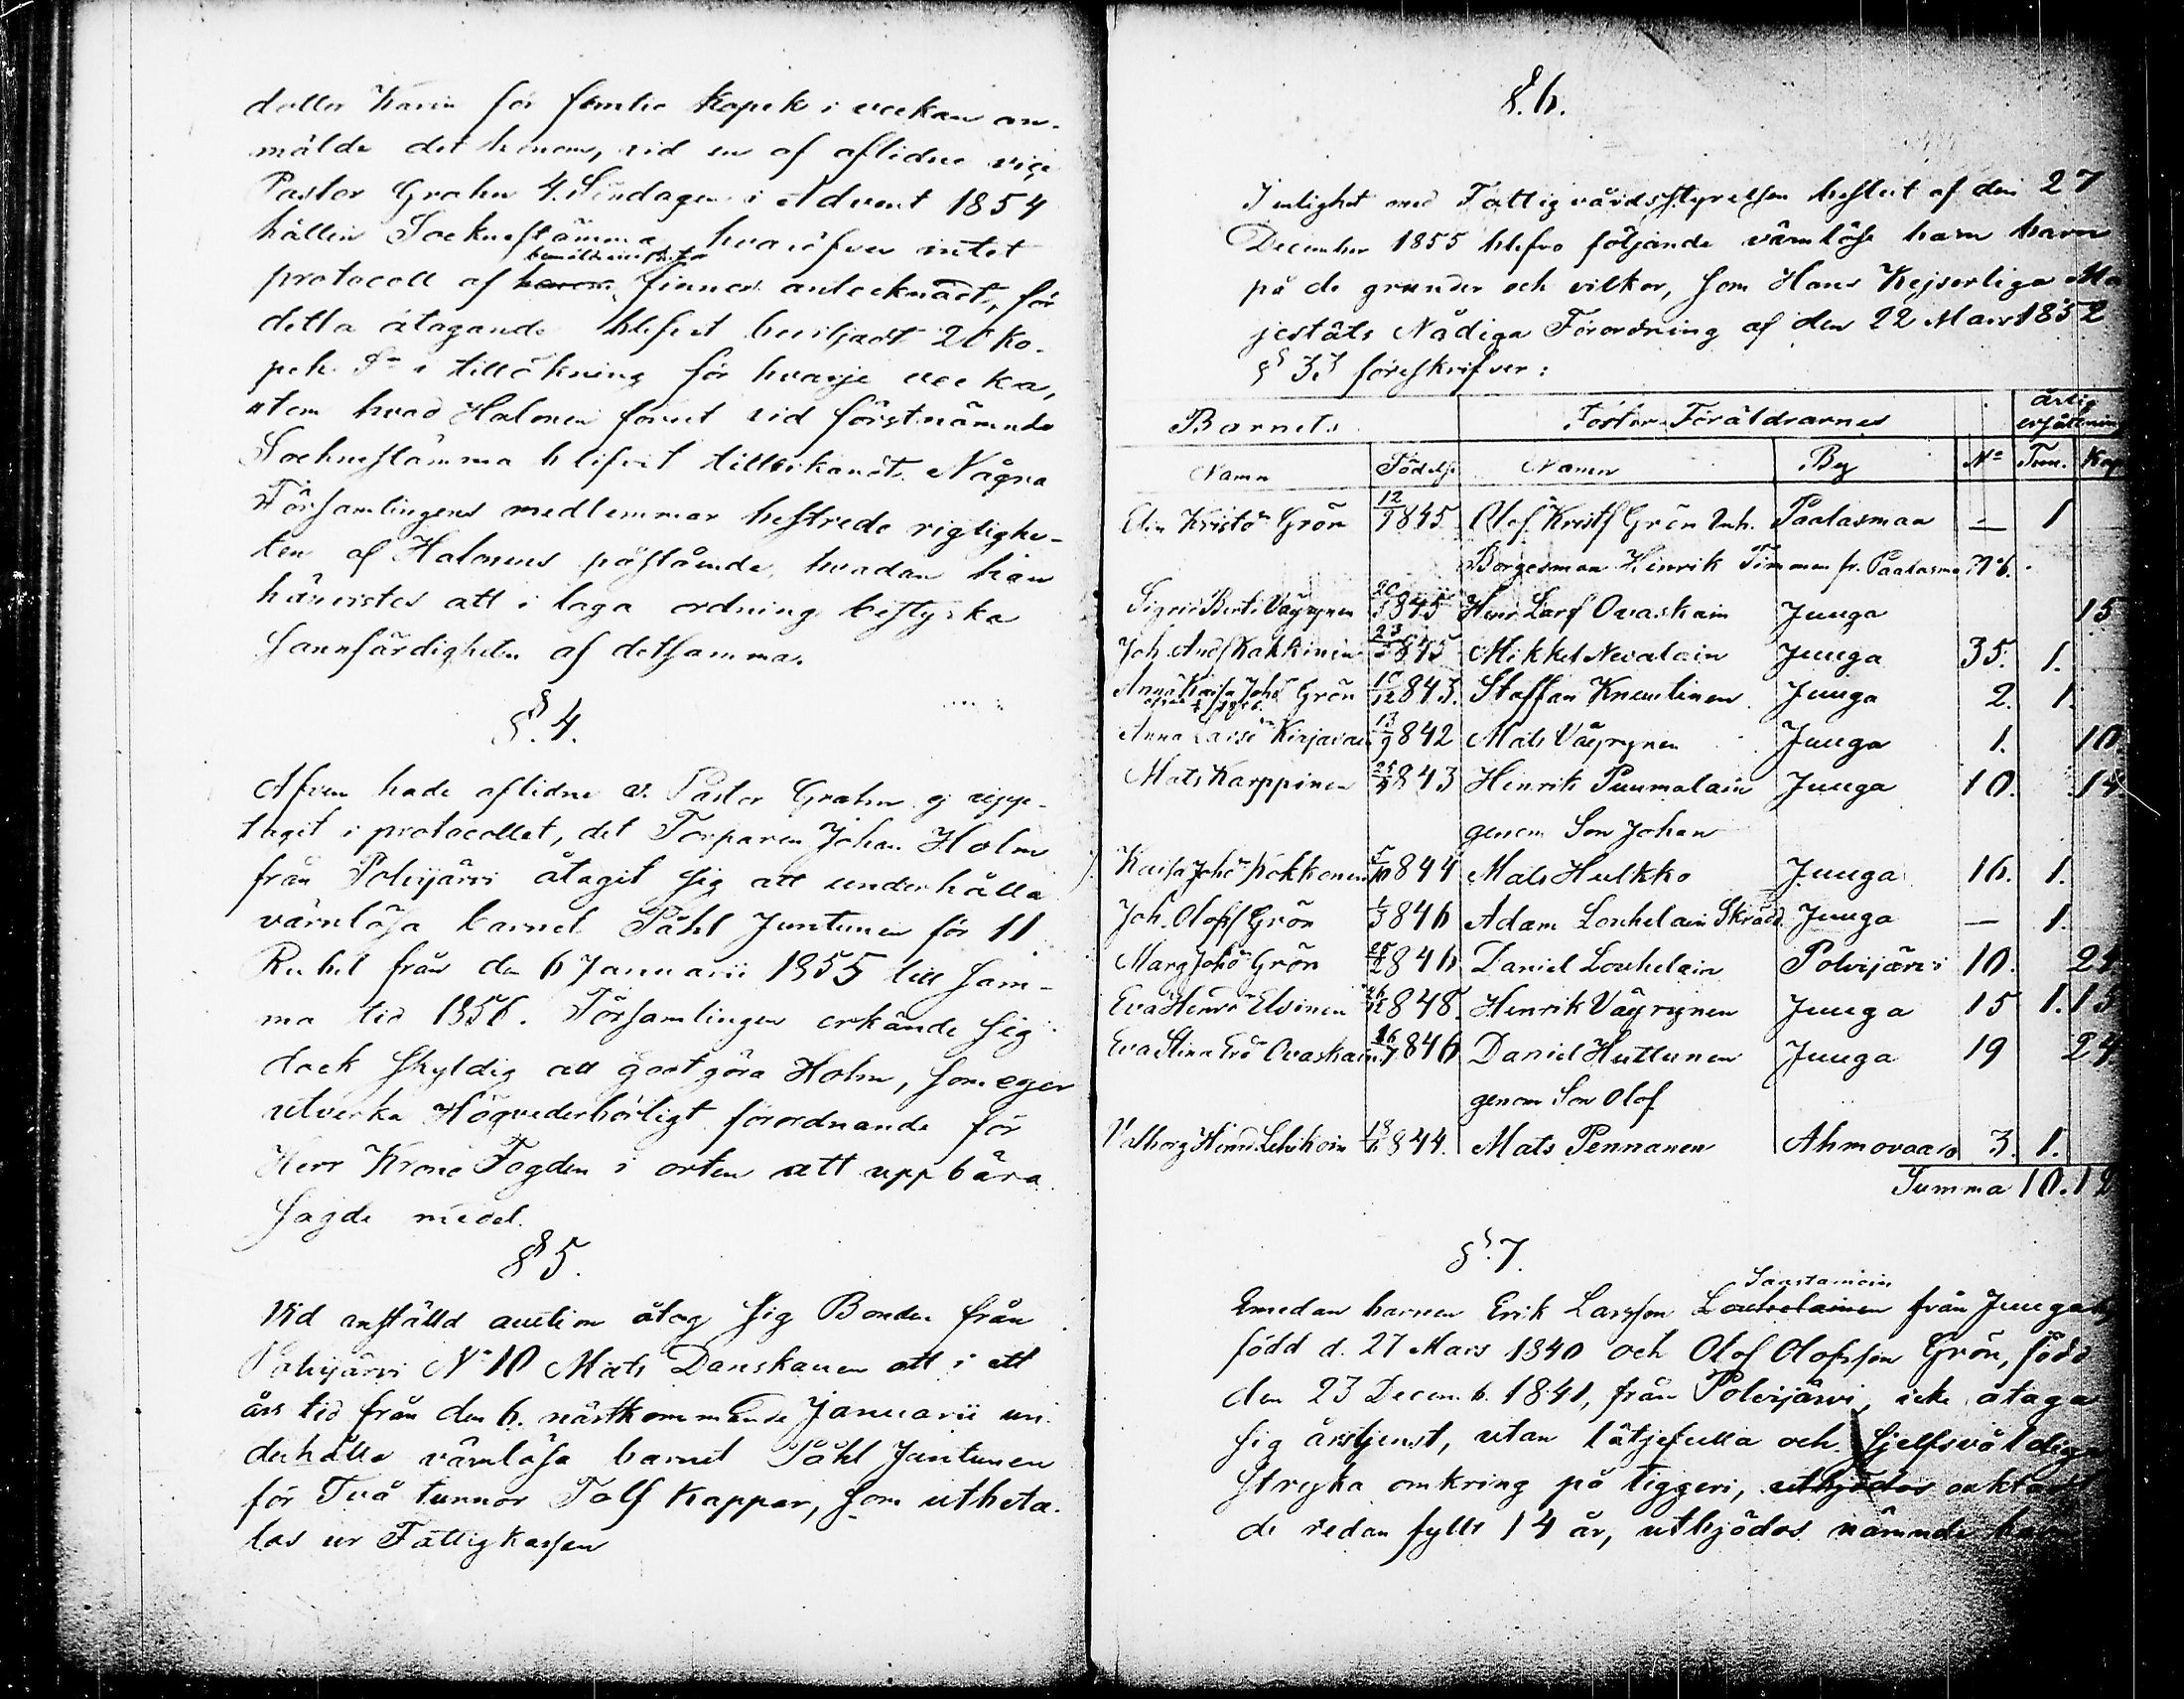 dotter Karin för femtio kopek i veckan an-
mälde det honom, vid en af aflidne vice
Pastor Grahn 4. Söndagen i Advent 1854
hållen Socknestämma hvaröfver intet
protocoll af finnes antecknadt, för
detta åtagande blifvit beviljadt 20 ko-
pek Sr i tillökning för hvarje vecka,
utom hvad Halonen förut vid förstnämnde
Socknestämma blifvit tillerkändt. Några
Församlingens medlemmar bestrede rigtighe-
ten af Halonens påstående hvadan han
hänvistes att i laga ordning bestyrka
sannfärdigheten af detsamma.
§. 4.
Afven hade aflidne v. Pastor Grahn ej upp-
tagit i protocollet, det Torparen Johan Holm
från Polvijärvi åtagit sig att underhålla
värnlösa barnet Påhl Juntunen för 11
Rubel från den 6 Januarii 1855 till sam-
ma tid 1856. Församlingen erkände sig
dock skyldig att godtgöra Holm, som eger
utverka Högvederbörligt förordnande för
Herr Krono Fogden i orten att uppbära
sagde medel.
§ 5.
Vid anställd auction åtog sig Bonden från
Polvijärvi No 10 Mats Danskanen att i ett
års tid från den 6. nästkommande Januarii un-
derhålla värnlösa barnet Påhl Juntunen
för Två tunnor Tolf kappar, som utbeta-
las ur Fattigkassan
§. 6.
I enlighet med Fattigvårdsstyrelsen beslut af den 27
December 1855 blefvo följande värnlösa barn
på de grunder och vilkor, som Hans Kejserliga Ma
jestäts Nådiga Förordning af den 22 Mars 1852
§ 33 föreskrifver:
Barnets Foster-Föräldrarnes årlig ersättning
Namn Födelse Namn By No Tun. Kap
Elin Kristo Grön 12/9 845 Olof Kristf Grön Inh. Paalasmaa — 1
Borgesman Henrik Timonen fr. Paalasma No 6.
Sigrid Bert. Väyrynen 20/5 845 Henr Larss Ovaskain Juuga 15
Joh. And Kakkinen 23/5 845 Mikkel Nevalain Juuga 35. 1.
Anna Kaisa Johd Grön 10/12 843. Staffan Knuutinen Juuga 2. 1.
Anna Larsd Kirjavain 13/9 842 Mats Väyrynen Juuga 1. 10
Mats Karppinen 843 Henrik Puumalain Juuga 10. 14
genom Son Johan
Kaisa Johd Kokkonen 5/10 844 Mats Hulkko Juuga 16. 1.
Joh. Olofss Grön 846 Adam Louhelain Skrädd. Juuga — 1.
Marg Johd Grön 846 Daniel Louhelain Polvijärvi 10. 24
Eva Henrd Elvinen 848. Henrik Väyrynen Juuga 15 1. 15
Eva Stina Ovaskain 16/7 846 Daniel Huttunen Juuga 19 24
genom Son Olof
Valborg Henrd. 844. Mats Pennanen Ahmovaara 3. 1.
Summa 10. 12
§. 7.
Emedan barnen Erik Larsson Louhelainen från Juuga
född d. 27 Mars 1840 och Olof Olofsson Grön, född
den 23 Decemb. 1841, från Polvijärvi, icke åtaga
sig årstjenst, utan lätjefulla och sjelfsvåldiga
stryka omkring på tiggeri, utbjödos oaktadt
de redan fyllt 14 år, utbjödos nämnde barn